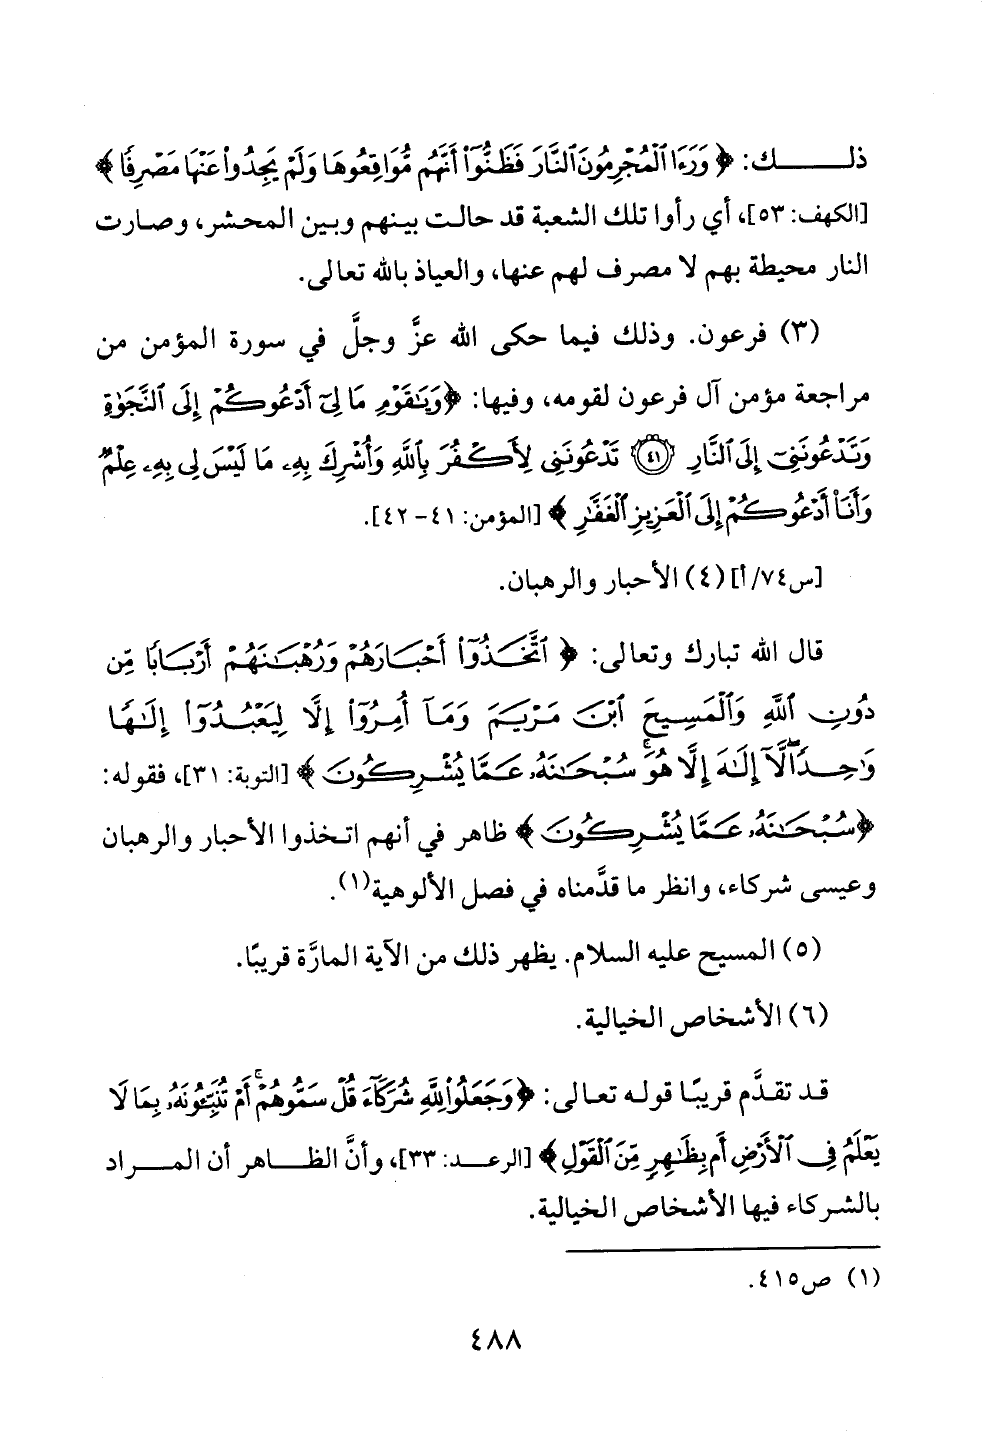 ذلـــــك: ﴿ وَرَءَا ٱلْمُجْرِمُونَ ٱلنَّارَ فَظَنُّوٓا۟ أَنَّهُم مُّوَاقِعُوهَا وَلَمْ يَجِدُوا۟ عَنْهَا مَصْرِفًا ﴾
[الكهف: ٥٣]، أي رأوا تلك الشعبة قد حالت بينهم وبين المحشر، وصارت
النار محيطة بهم لا مصرف لهم عنها، والعياذ بالله تعالى.
(٣) فرعون. وذلك فيما حكى الله عزَّ وجلَّ في سورة المؤمن من
مراجعة مؤمن آل فرعون لقومه، وفيها: ﴿وَيَٰقَوْمِ مَا لِىٓ أَدْعُوكُمْ إِلَى ٱلنَّجَوٰةِ
وَتَدْعُونَنِىٓ إِلَى ٱلنَّارِ ٤١ تَدْعُونَنِى لِأَكْفُرَ بِٱللَّهِ وَأُشْرِكَ بِهِۦ مَا لَيْسَ لِى بِهِۦ عِلْمٌ
وَأَنَا۠ أَدْعُوكُمْ إِلَى ٱلْعَزِيزِ ٱلْغَفَّٰرِ ﴾ [المؤمن: ٤١-٤٢].
[س٧٤/أ] (٤) الأحبار والرهبان.
قال الله تبارك وتعالى: ﴿ ٱتَّخَذُوٓا۟ أَحْبَارَهُمْ وَرُهْبَٰنَهُمْ أَرْبَابًا مِّن
دُونِ ٱللَّهِ وَٱلْمَسِيحَ ٱبْنَ مَرْيَمَ وَمَآ أُمِرُوٓا۟ إِلَّا لِيَعْبُدُوٓا۟ إِلَٰهًا
وَٰحِدًا ۖ لَّآ إِلَٰهَ إِلَّا هُوَ ۚ سُبْحَٰنَهُۥ عَمَّا يُشْرِكُونَ ﴾ [التوبة: ٣١]، فقوله:
﴿سُبْحَٰنَهُۥ عَمَّا يُشْرِكُونَ ﴾ ظاهر في أنهم اتخذوا الأحبار والرهبان
وعيسى شركاء، وانظر ما قدَّمناه في فصل الألوهية(١).
(٥) المسيح عليه السلام. يظهر ذلك من الآية المارَّة قريبًا.
(٦) الأشخاص الخيالية.
قد تقدَّم قريبًا قوله تعالى: ﴿وَجَعَلُوا۟ لِلَّهِ شُرَكَآءَ قُلْ سَمُّوهُمْ ۚ أَمْ تُنَبِّـُٔونَهُۥ بِمَا لَا
يَعْلَمُ فِى ٱلْأَرْضِ أَم بِظَٰهِرٍ مِّنَ ٱلْقَوْلِ ﴾ [الرعد: ٣٣]، وأنَّ الظاهر أن المراد
بالشركاء فيها الأشخاص الخيالية.
(١) ص٤١٥.
٤٨٨